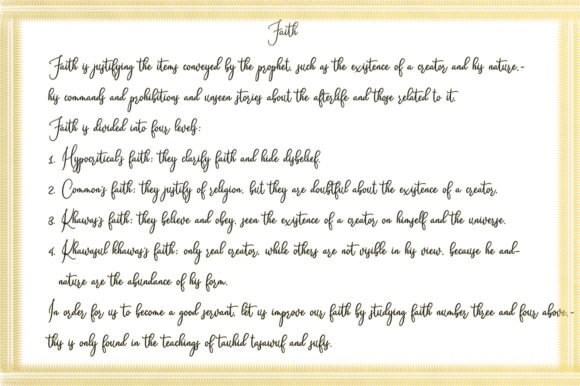 Faith
Faith is justifying the items conveyed by the prophet, such as the existence of a creator and his nature,-
his commands and prohibitions and unseen stories about the afterlife and those related to it.
Faith is divided into four levels:
1. Hypocritical's faith; they clarify faith and hide disbelief.
2. Common's faith; they justify of religion, but they are doubtful about the existence of a creator.
3. Khawas's faith; they believe and obey, seen the existence of a creator on himself and the universe.
4. Khawasul khawas's faith: only real creator, while others are not visible in his view, because he and-
nature are the abundance of his form.
In order for us to become a good servant, let us improve our faith by studying faith number three and four above,-
this is only found in the teachings of tauhid tasawuf and sufis.